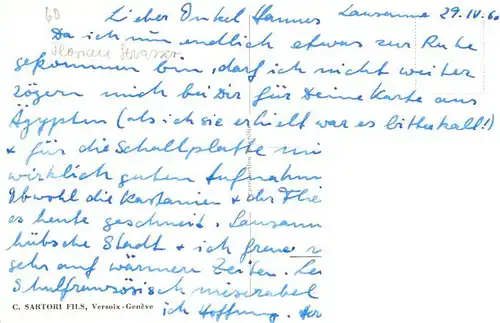 60
Lieber Onkel Hannes Lausanne 29.IV.60
Da ich nun endlich etwas zur Ruhe
Florian Strasser
gekommen bin, darf ich nicht weiter
zögern mich bei Dir für Deine Karte aus
Ägypten (als ich sie erhielt war es bitterkalt!)
+ für die Schallplatte mi
wirklich guten Aufnahm
Obwohl die Kastanien + der Flie
es heute geschneit. Lausann
hübsche Stadt + ich freue
sehr auf wärmere Zeiten. Lei
Schulfranzösisch miserabel
C. SARTORI FILS, Versoix - Genève
ich Hoffnung.